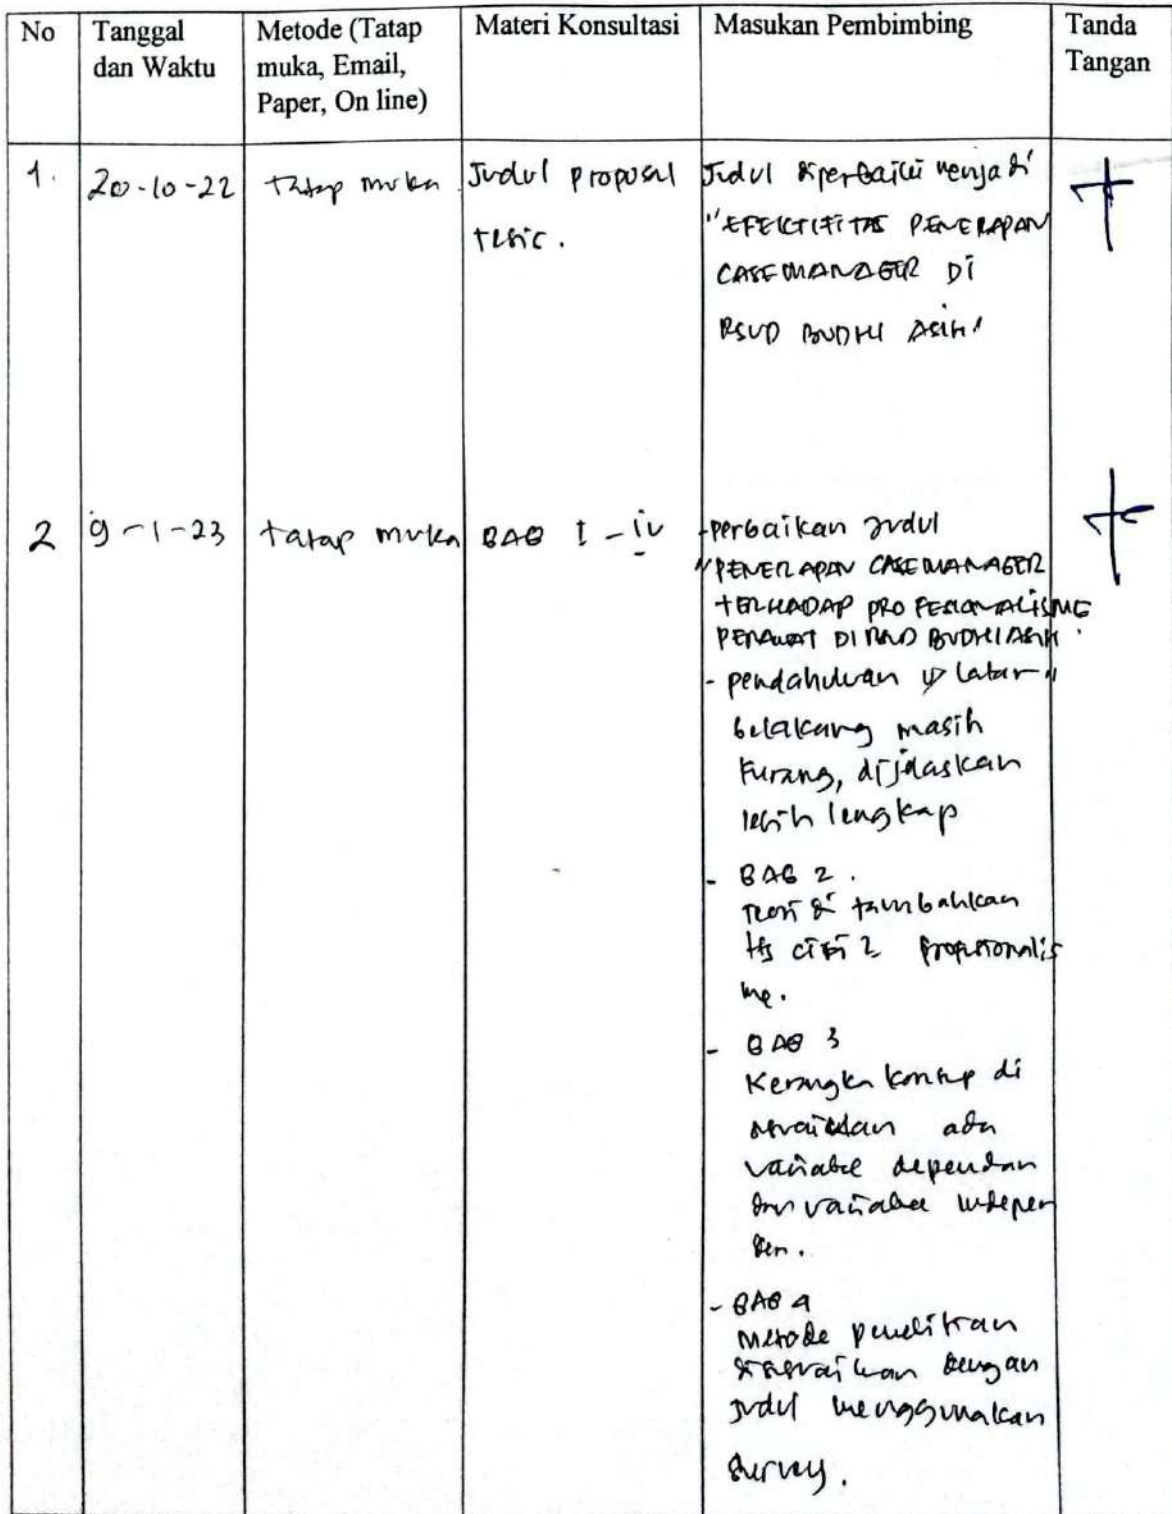 No Tanggal dan Waktu Metode (Tatap muka, Email, Paper, On line) Materi Konsultasi Masukan Pembimbing Tanda Tangan
1. 20-10-22 Tatap muka Judul proposal tesis. Judul diperbaiki menjadi
"EFEKTIFITAS PENERAPAN
CASE MANAGER DI
RSUD BUDHI ASIH"
2 9-1-23 tatap muka BAB I - IV -perbaikan judul
"PENERAPAN CASE MANAGER
TERHADAP PROFESIONALISME
PERAWAT DI RSUD BUDHI ASIH"
- pendahuluan latar
belakang masih
kurang, dijelaskan
lebih lengkap
- BAB 2.
Teori di tambahkan
ttg ciri2 profesionalis
me.
- BAB 3
Kerangka konsep di
sesuaikan ada
variabel dependen
dan variabel indepen
den.
- BAB 4
metode penelitian
disesuaikan dengan
judul menggunakan
survey.